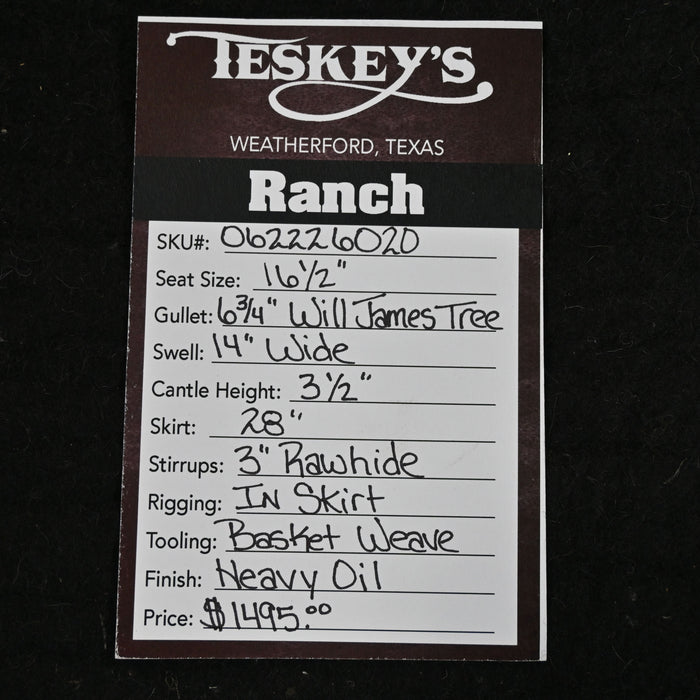 TESKEY'S
WEATHERFORD, TEXAS
Ranch
SKU#: 062226020
Seat Size: 16 1/2"
Gullet: 6 3/4" Will James Tree
Swell: 14" Wide
Cantle Height: 3 1/2"
Skirt: 28"
Stirrups: 3" Rawhide
Rigging: IN Skirt
Tooling: Basket Weave
Finish: Heavy Oil
Price: $1495.00